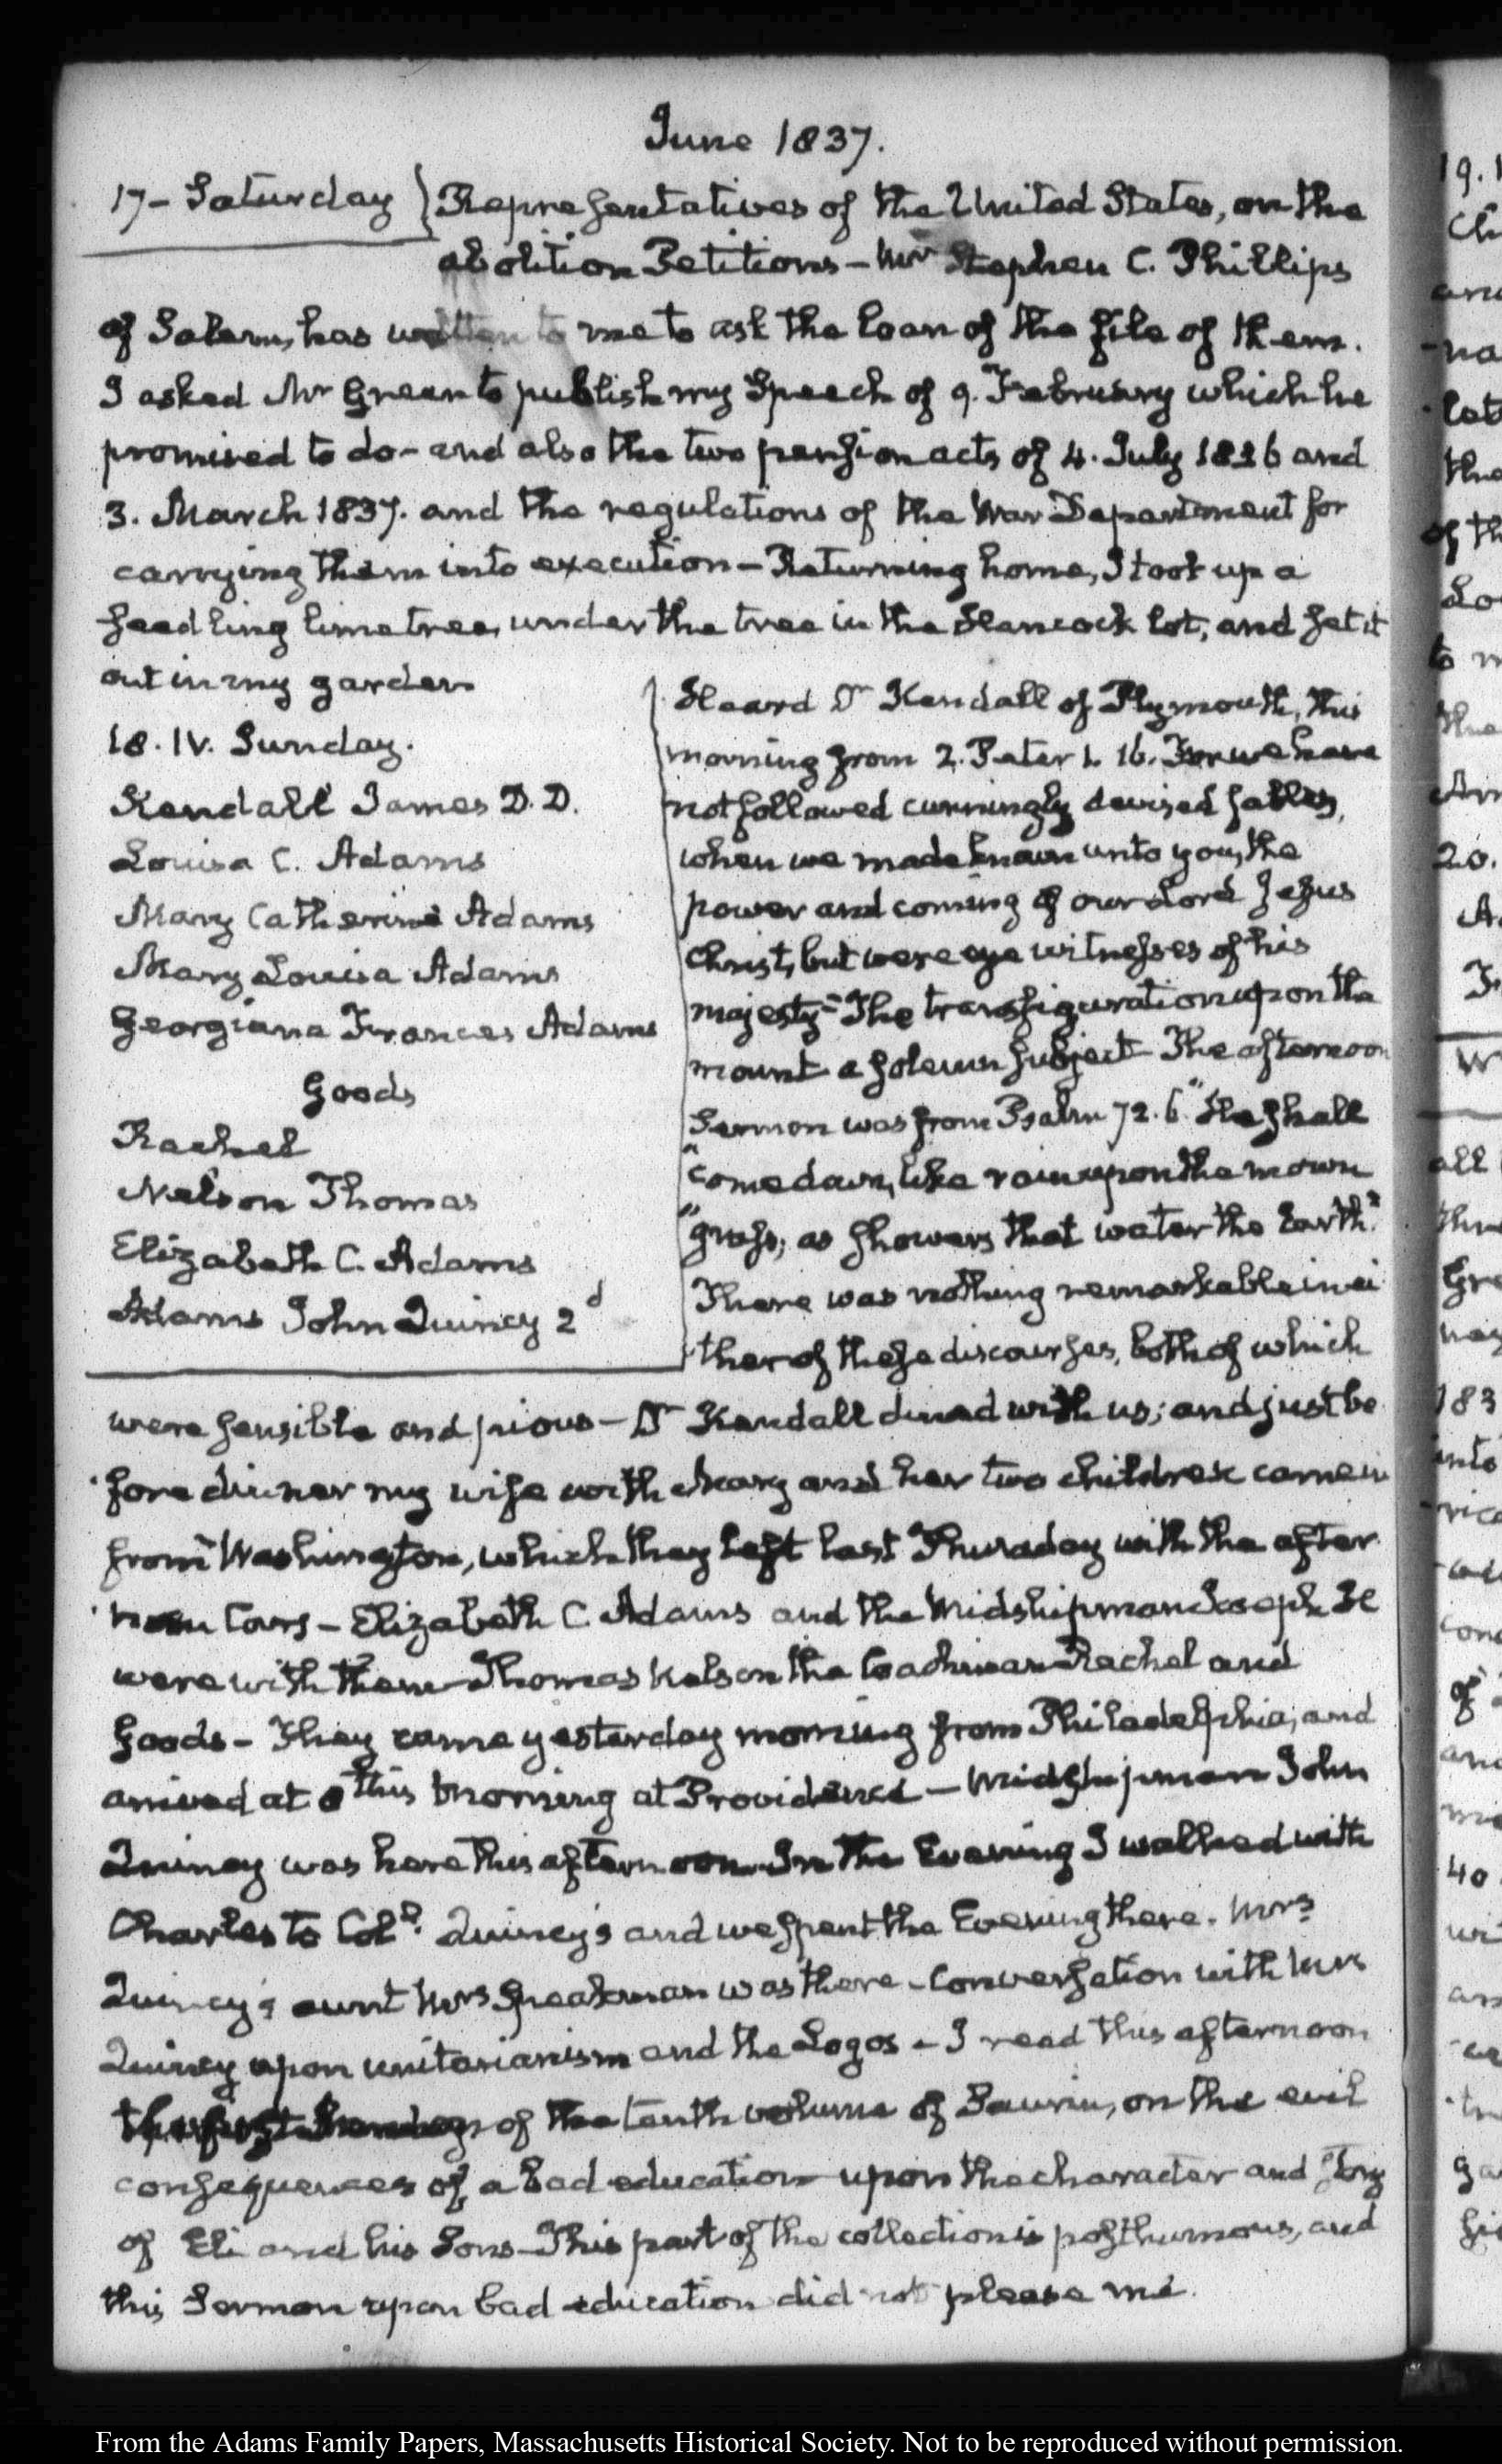 June 1837.
17 - Saturday
Representatives of the United States, on the
abolition Petitions — Mr Stephen C. Phillips
of Salem, has written to me to ask the loan of the file of them.
I asked Mr Green to publish my Speech of 9. February which he
promised to do - and also the two pension acts of 4. July 1836 and
3. March 1837. and the regulations of the War Department for
carrying them into execution — Returning home, I took up a
seedling lime tree, under the tree in the Hancock lot, and set it
out in my garden
18. IV. Sunday.
Kendall James D.D.
Louisa C. Adams
Mary Catherine Adams
Mary Louisa Adams
Georgiana Frances Adams
Goods
Rachel
Nelson Thomas
Elizabeth C. Adams
Adams John Quincy 2d
Heard Dr Kendall of Plymouth, this
morning from 2. Peter 1. 16. For we have
not followed cunningly devised fables,
when we made known unto you, the
power and coming of our Lord Jesus
Christ, but were eye witnesses of his
majesty — The transfiguration upon the
mount a solemn subject — The afternoon
Sermon was from Psalm 72. 6. "He shall
"come down, like rain upon the mown
"grass; as showers that water the Earth."
There was nothing remarkable in ei
ther of these discourses, both of which
were sensible and pious — Dr Kendall dined with us; and just be
fore dinner my wife with Mary and her two children came in
from Washington, which they left last Thursday with the after
noon Cars — Elizabeth C. Adams and the Midshipman Joseph H
were with them — Thomas Nelson the Coachman Rachel and
Goods — They came yesterday morning from Philadelphia, and
arrived at this morning at Providence — Midshipman John
Quincy was here this afternoon — In the Evening I walked with
Charles to Coll. Quincy's and we spent the Evening there. Mrs
Quincy's aunt Mrs Speakman was there — Conversation with Mrs
Quincy upon unitarianism and the Logos — I read this afternoon
the first Sermon of the tenth volume of Saurin, on the evil
consequences of a bad education upon the character and
of Eli and his Sons — This part of the collection is posthumous, and
this Sermon upon bad education did not please me.
From the Adams Family Papers, Massachusetts Historical Society. Not to be reproduced without permission.